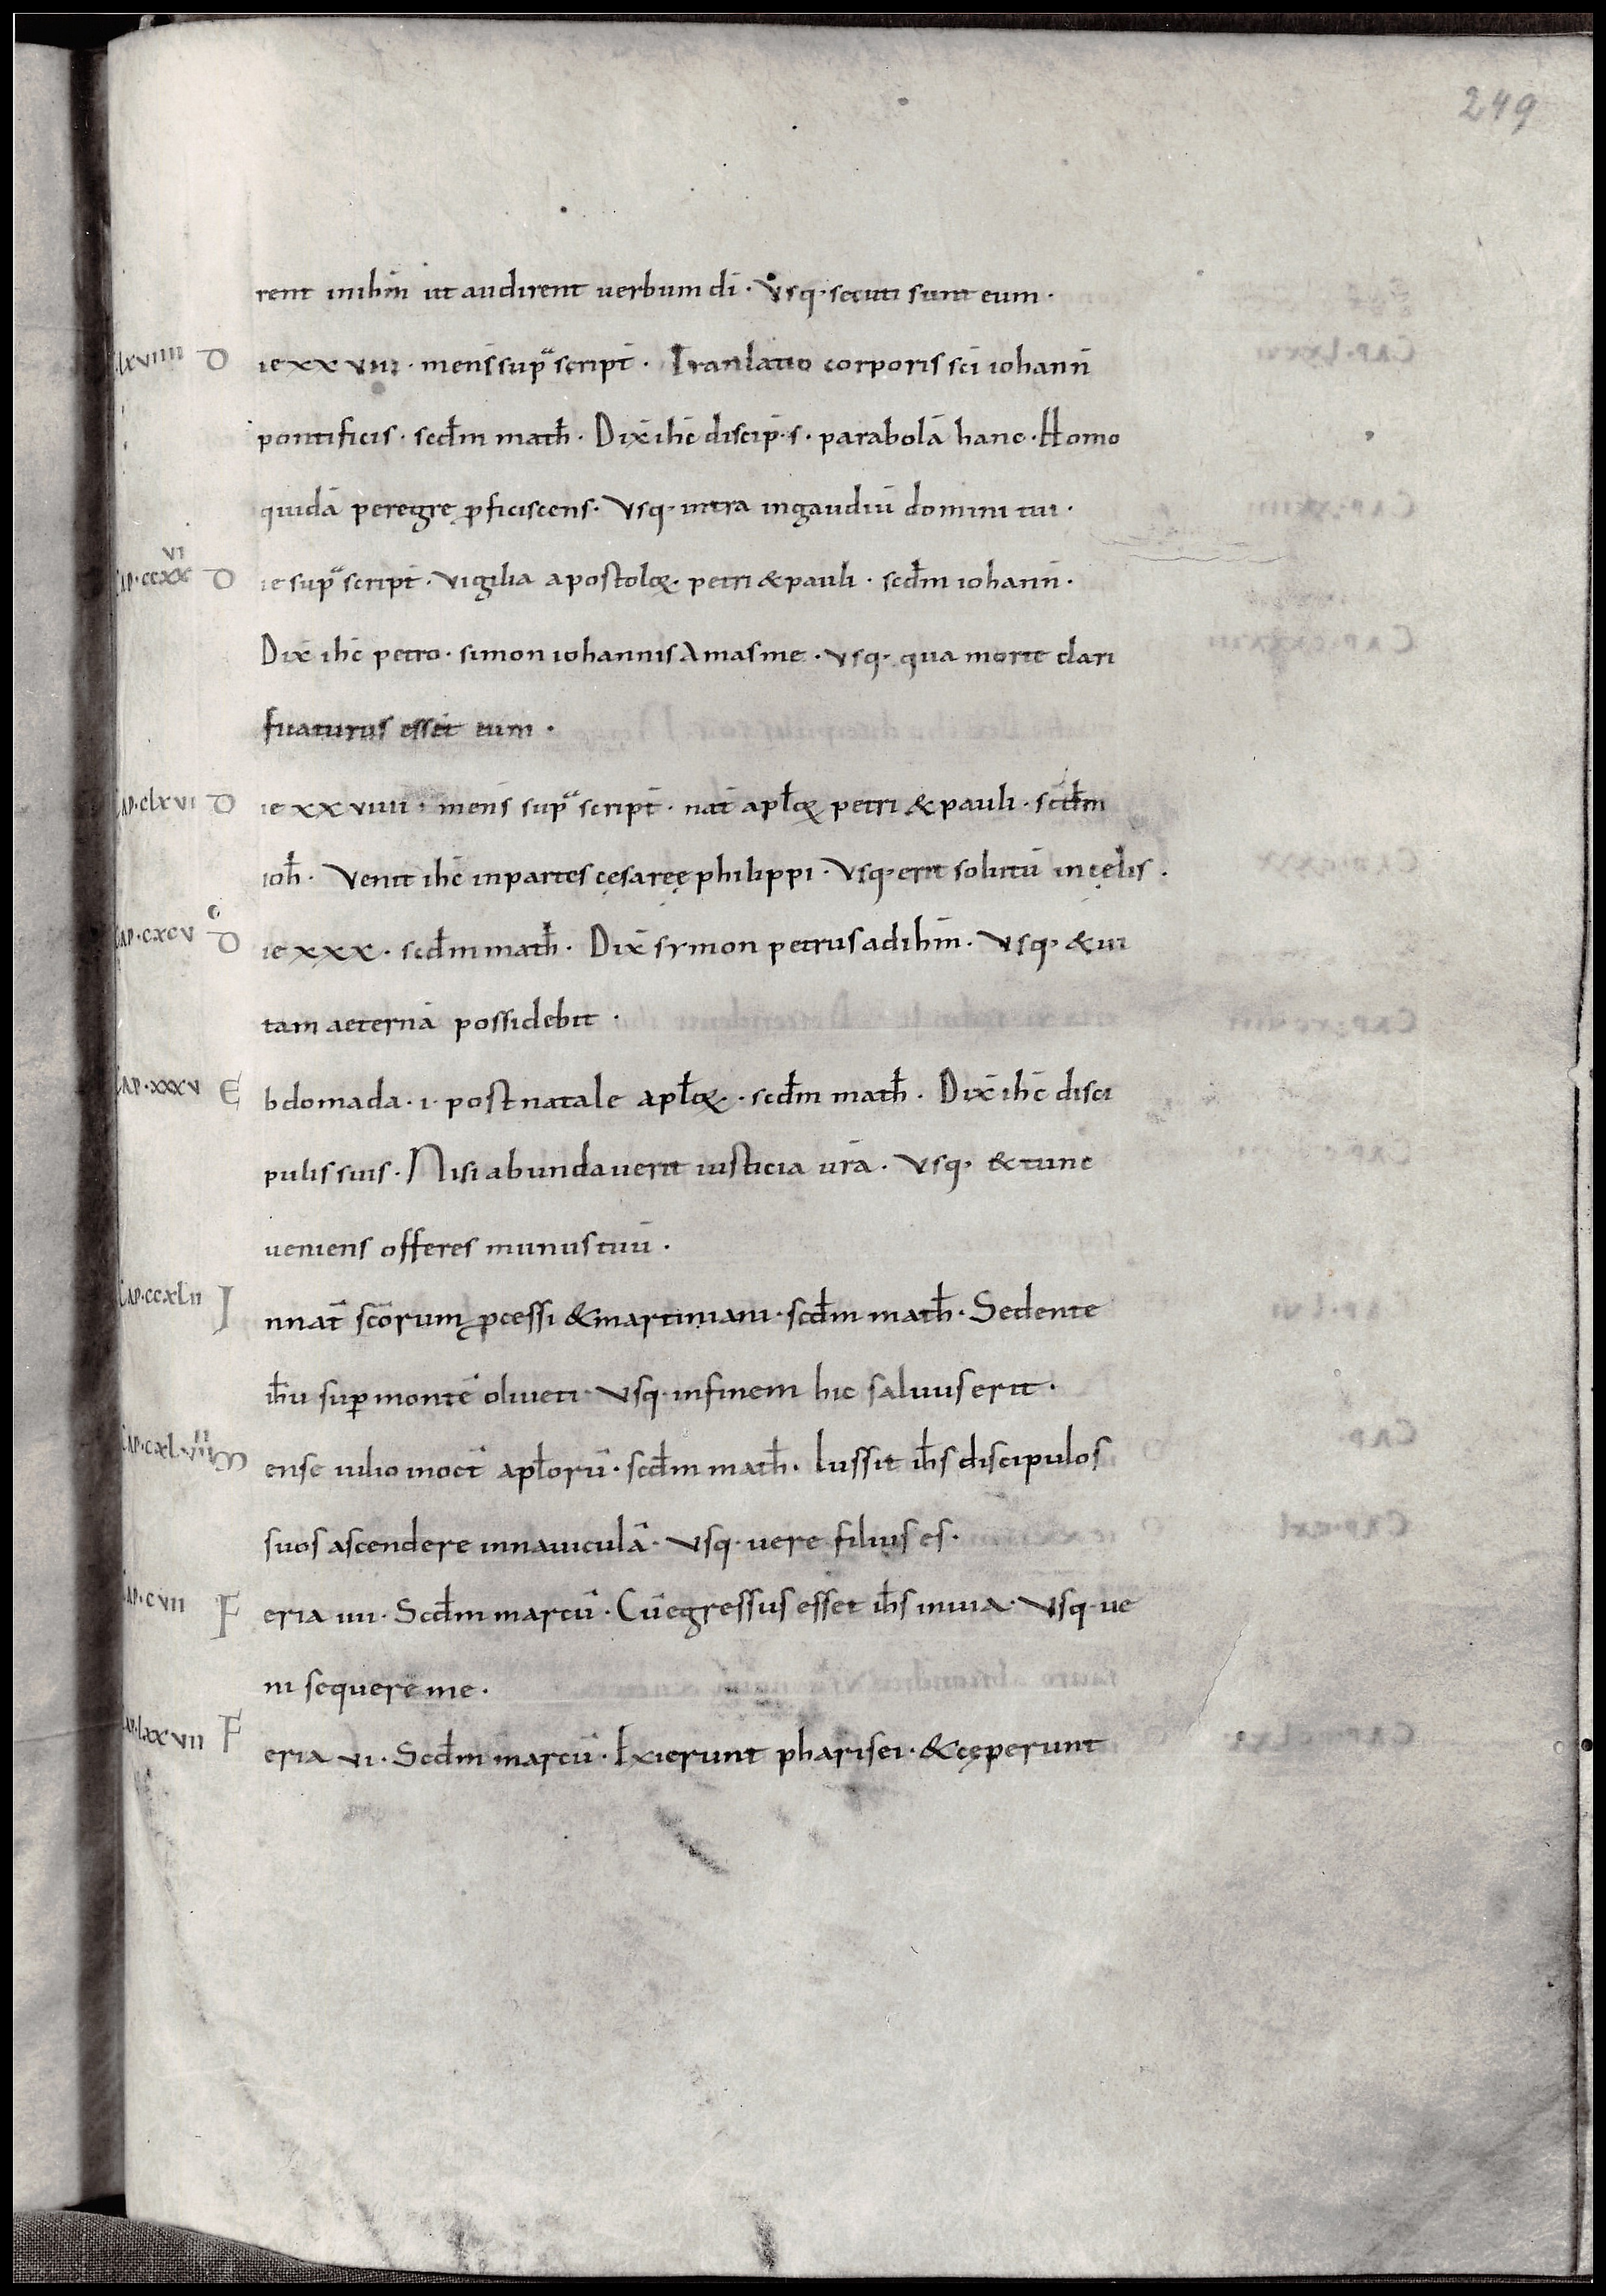 249
rent inihm̄ ut audirent uerbum dī · Vsq· secuti sunt eum ·
lxviiii D ie xxviii · mens̄ supͣ script̄ · Tranlatio corporis sc̄i iohann̄
pontificis · scd̄m math̄ · Dix̄ ihc̄ discip̄ · s · parabolā hanc · Homo
quidā peregre ꝓficiscens · Vsq· intra ingaudiū domini tui ·
CAP · ccxx vi D ie supͣ script̄ · vigilia apostolоꝝ · petri & pauli · scd̄m iohann̄ ·
Dix̄ ihc̄ petro · simon iohannis Amasme · vsq· qua morte clari
ficaturus esset eum ·
CAP · clxvi D ie xxviiii · mens̄ supͣ script̄ · nat̄ apl̄oꝝ petri & pauli · scd̄m
ioh̄ · Venit ihc̄ inpartes cęsareę philippi · Vsq· erit solutū incęlis ·
CAP · cxcv D ie xxx · scd̄m math̄ · Dix̄ symon petrus adihm̄ · Vsq· & ui
tam aeternā possidebit ·
CAP · xxxv E bdomada · i · post natale apl̄oꝝ · scd̄m math̄ · Dix̄ ihc̄ disci
pulis suis · Nisi abundauerit iusticia ur̄a · Vsq· & tunc
ueniens offeres munus tuū ·
CAP · ccxlii I nnat̄ sc̄orum ꝓcessi & martiniani · scd̄m math̄ · Sedente
ih̄u suꝑ montē oliueti · Vsq· infinem hic saluus erit ·
CAP · cxl·vii ii M ense iulio inoct̄ apl̄orū · scd̄m math̄ · Iussit ih̄s discipulos
suos ascendere innauiculā · Vsq· uere filius es ·
CAP · cvii F eria iiii · Scd̄m marcū · Cū egressus esset ih̄s inuia · Vsq· ue
ni sequere me ·
CAP · lxxvii F eria vi · Scd̄m marcū · Exierunt pharisei · & cęperunt